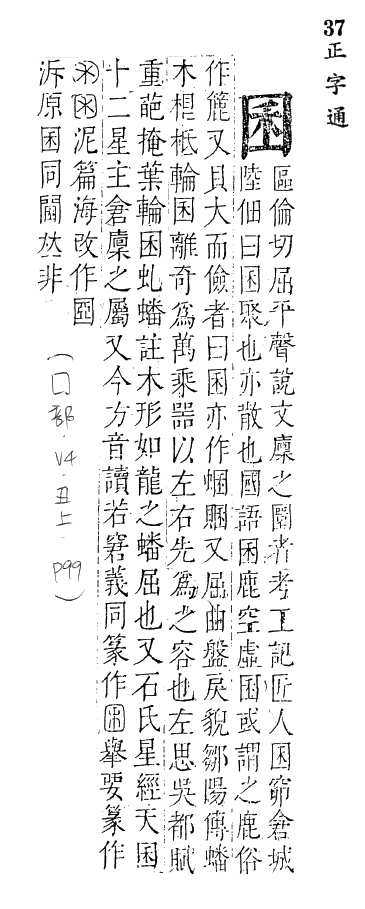 37正字通
囷
區倫切屈平聲說文廩之圜者考工記匠人囷窌倉城
陸佃曰囷聚也亦散也國語囷鹿空虛囷或謂之鹿俗
作簏又貝大而儉者曰囷亦作蜠又屈曲盤戾貌鄒陽傳蟠
木根柢輪囷離奇爲萬乘器以左右先爲之容也左思吳都賦
重葩掩葉輪囷虬蟠註木形如龍之蟠屈也又石氏星經天囷
十二星主倉廩之屬又今方音讀若窘義同篆作囷舉要篆作
泥篇海改作
泝原囷同𠀤非
(口部.V4.丑上.P99)